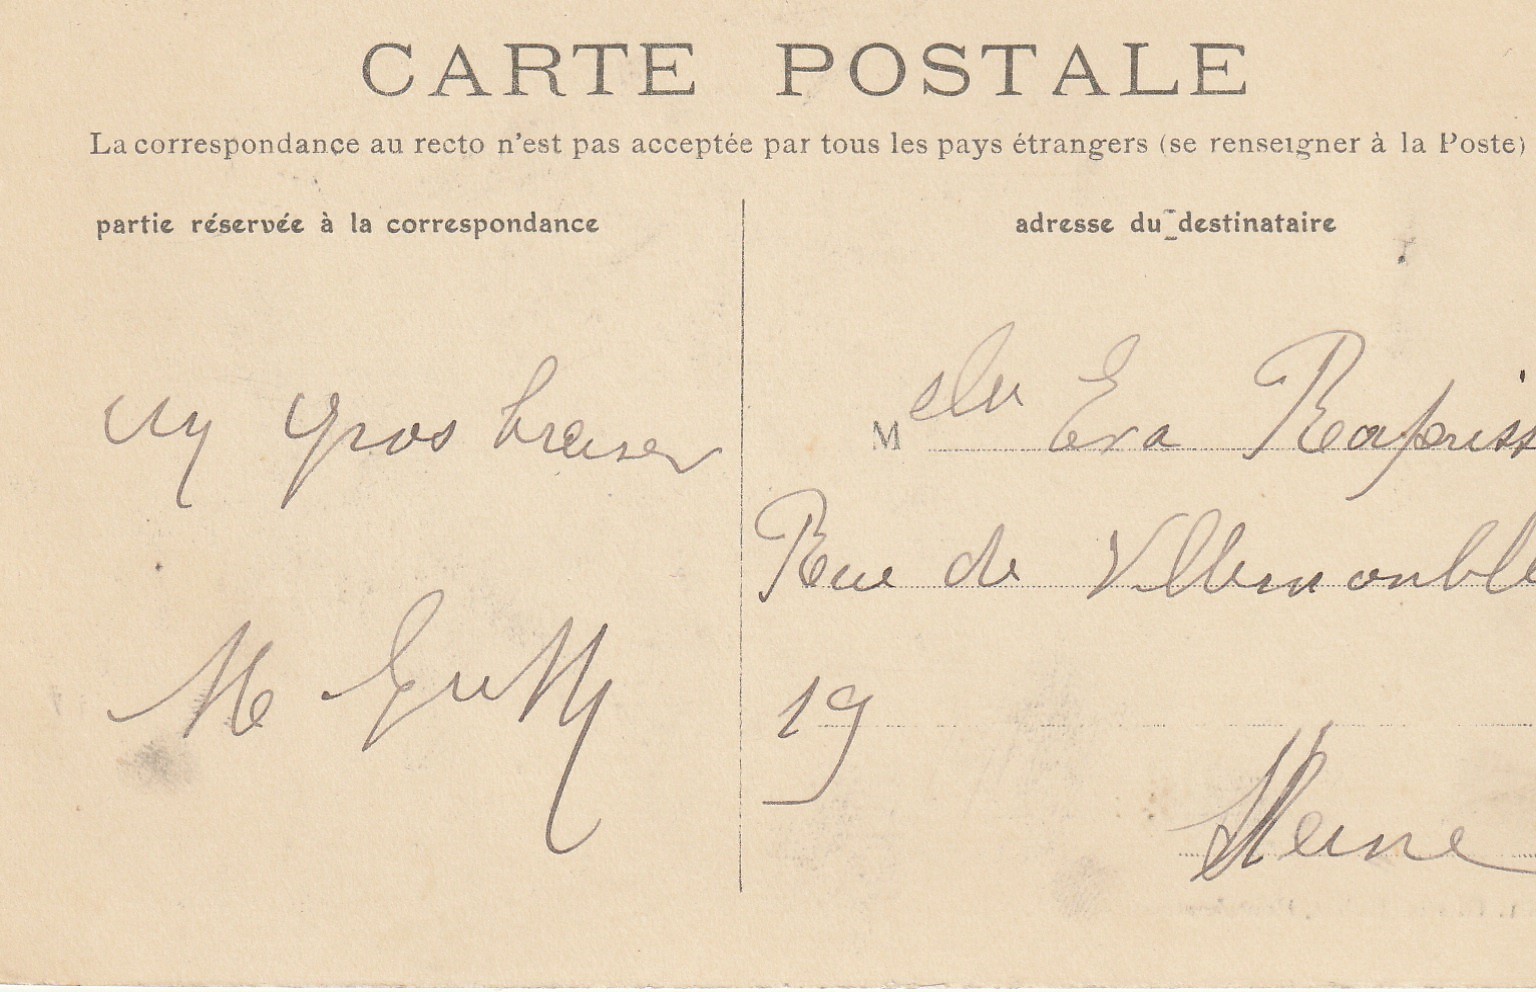 CARTE POSTALE
La correspondance au recto n'est pas acceptée par tous les pays étrangers (se renseigner à la Poste)
partie réservée à la correspondance
adresse du destinataire
un gros baiser
M
Melle Eva
Rue de Villemomble
19
Seine